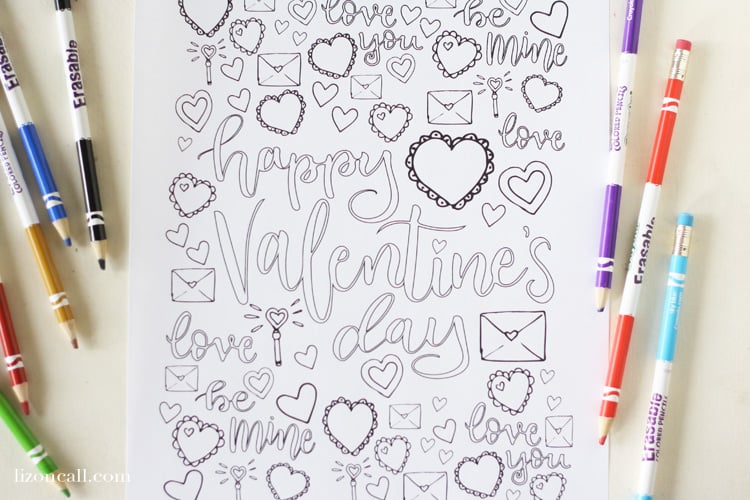 love you
be mine
love
happy
Valentine's
day
love
be mine
love you
Erasable
Erasable
Erasable
COLORED PENCILS
Erasable
Erasable
lizoncall.com